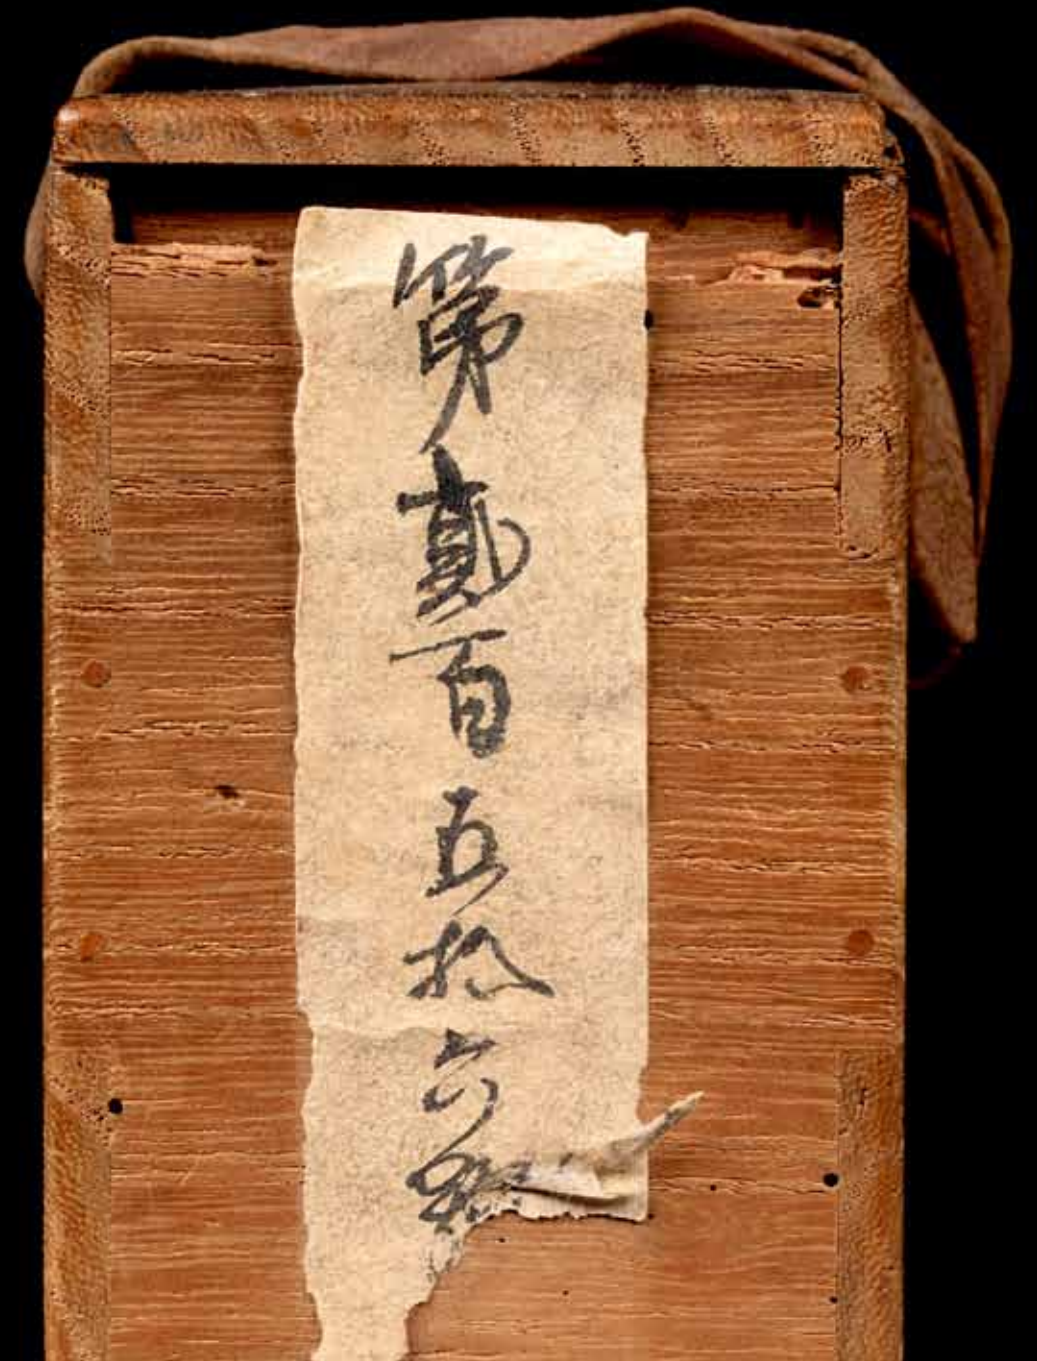 第貳百五拾六號